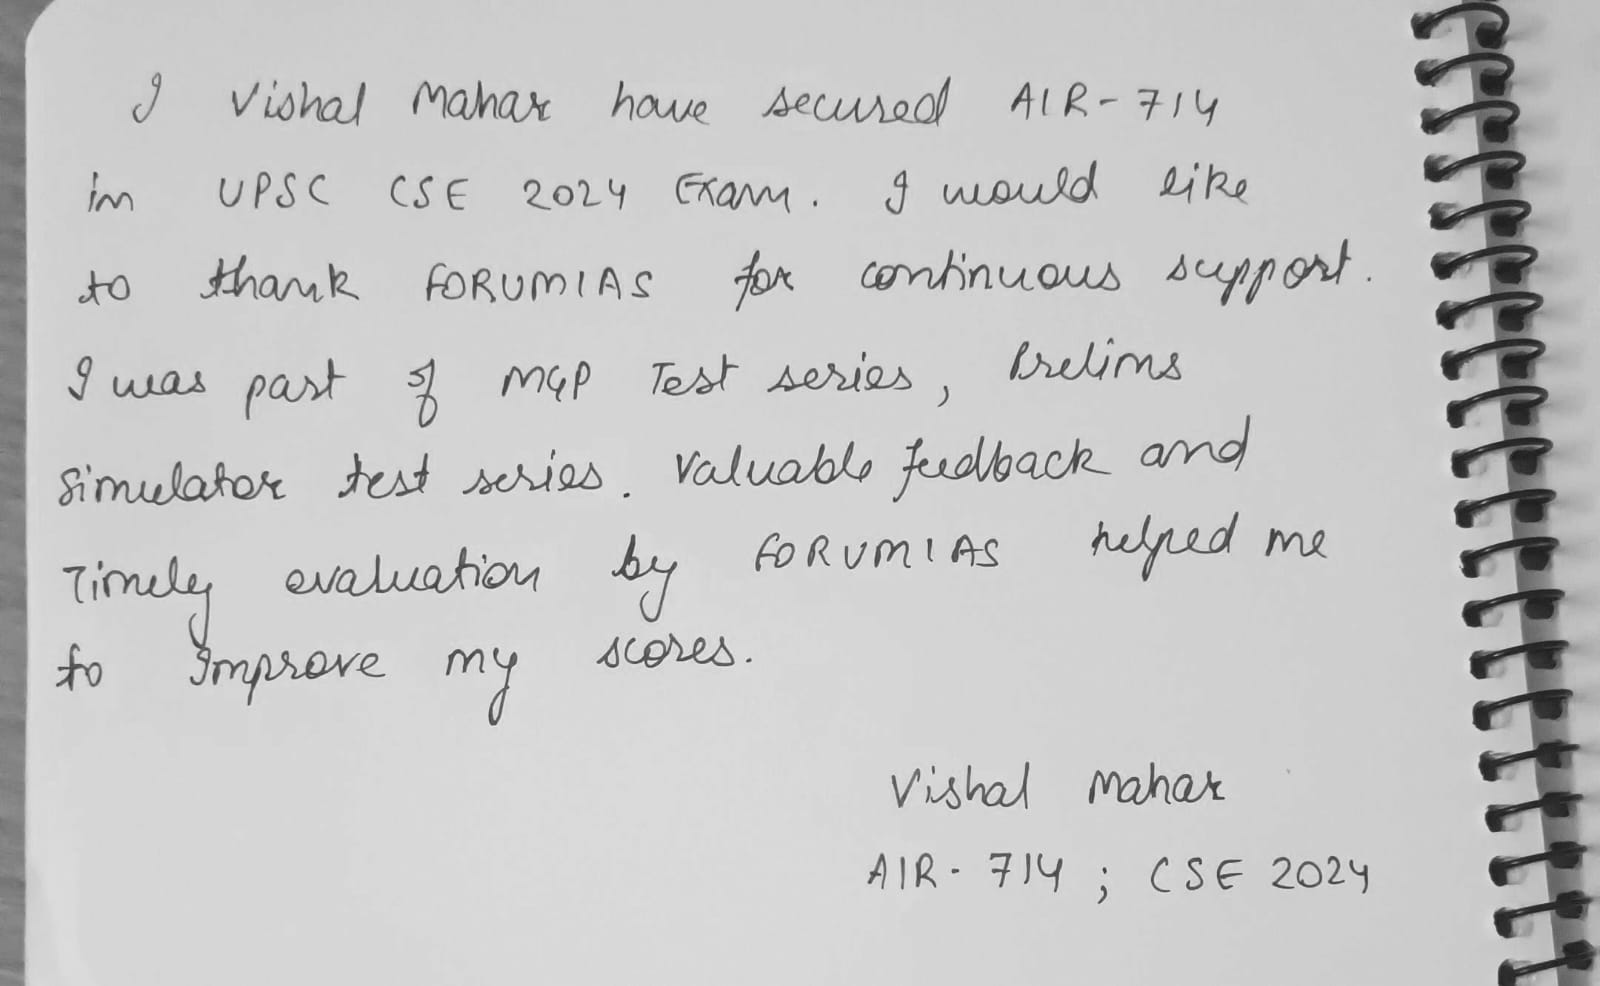 I Vishal Mahar have secured AIR-714
in UPSC CSE 2024 Exam. I would like
to thank FORUMIAS for continuous support.
I was part of MGP Test series, Prelims
Simulator test series. Valuable feedback and
Timely evaluation by FORUMIAS helped me
to Improve my scores.
Vishal Mahar
AIR-714; CSE 2024